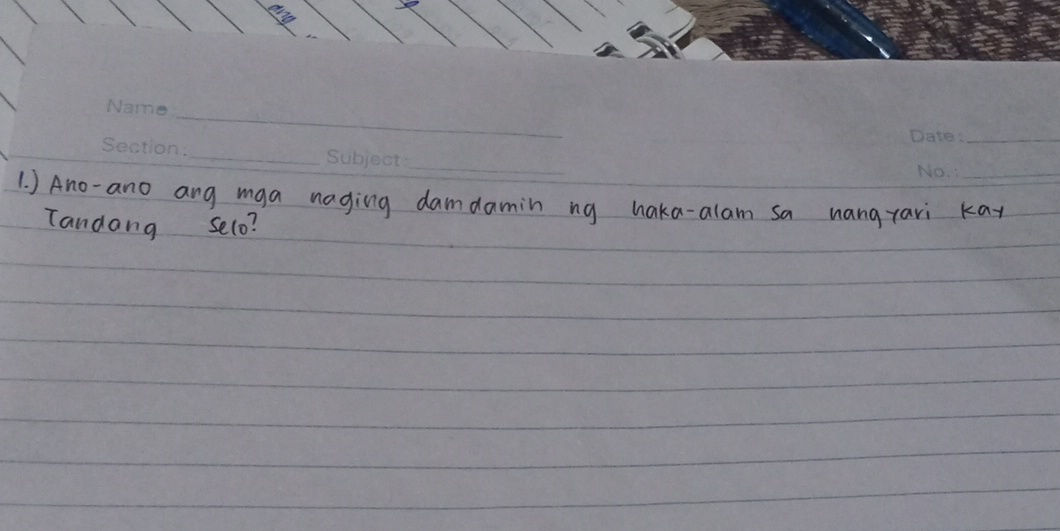 ang
Name
Date:
Section:
Subject:
No.:
1.) Ano-ano ang mga naging damdamin ng naka-alam sa nangyari kay
Tandang Selo?